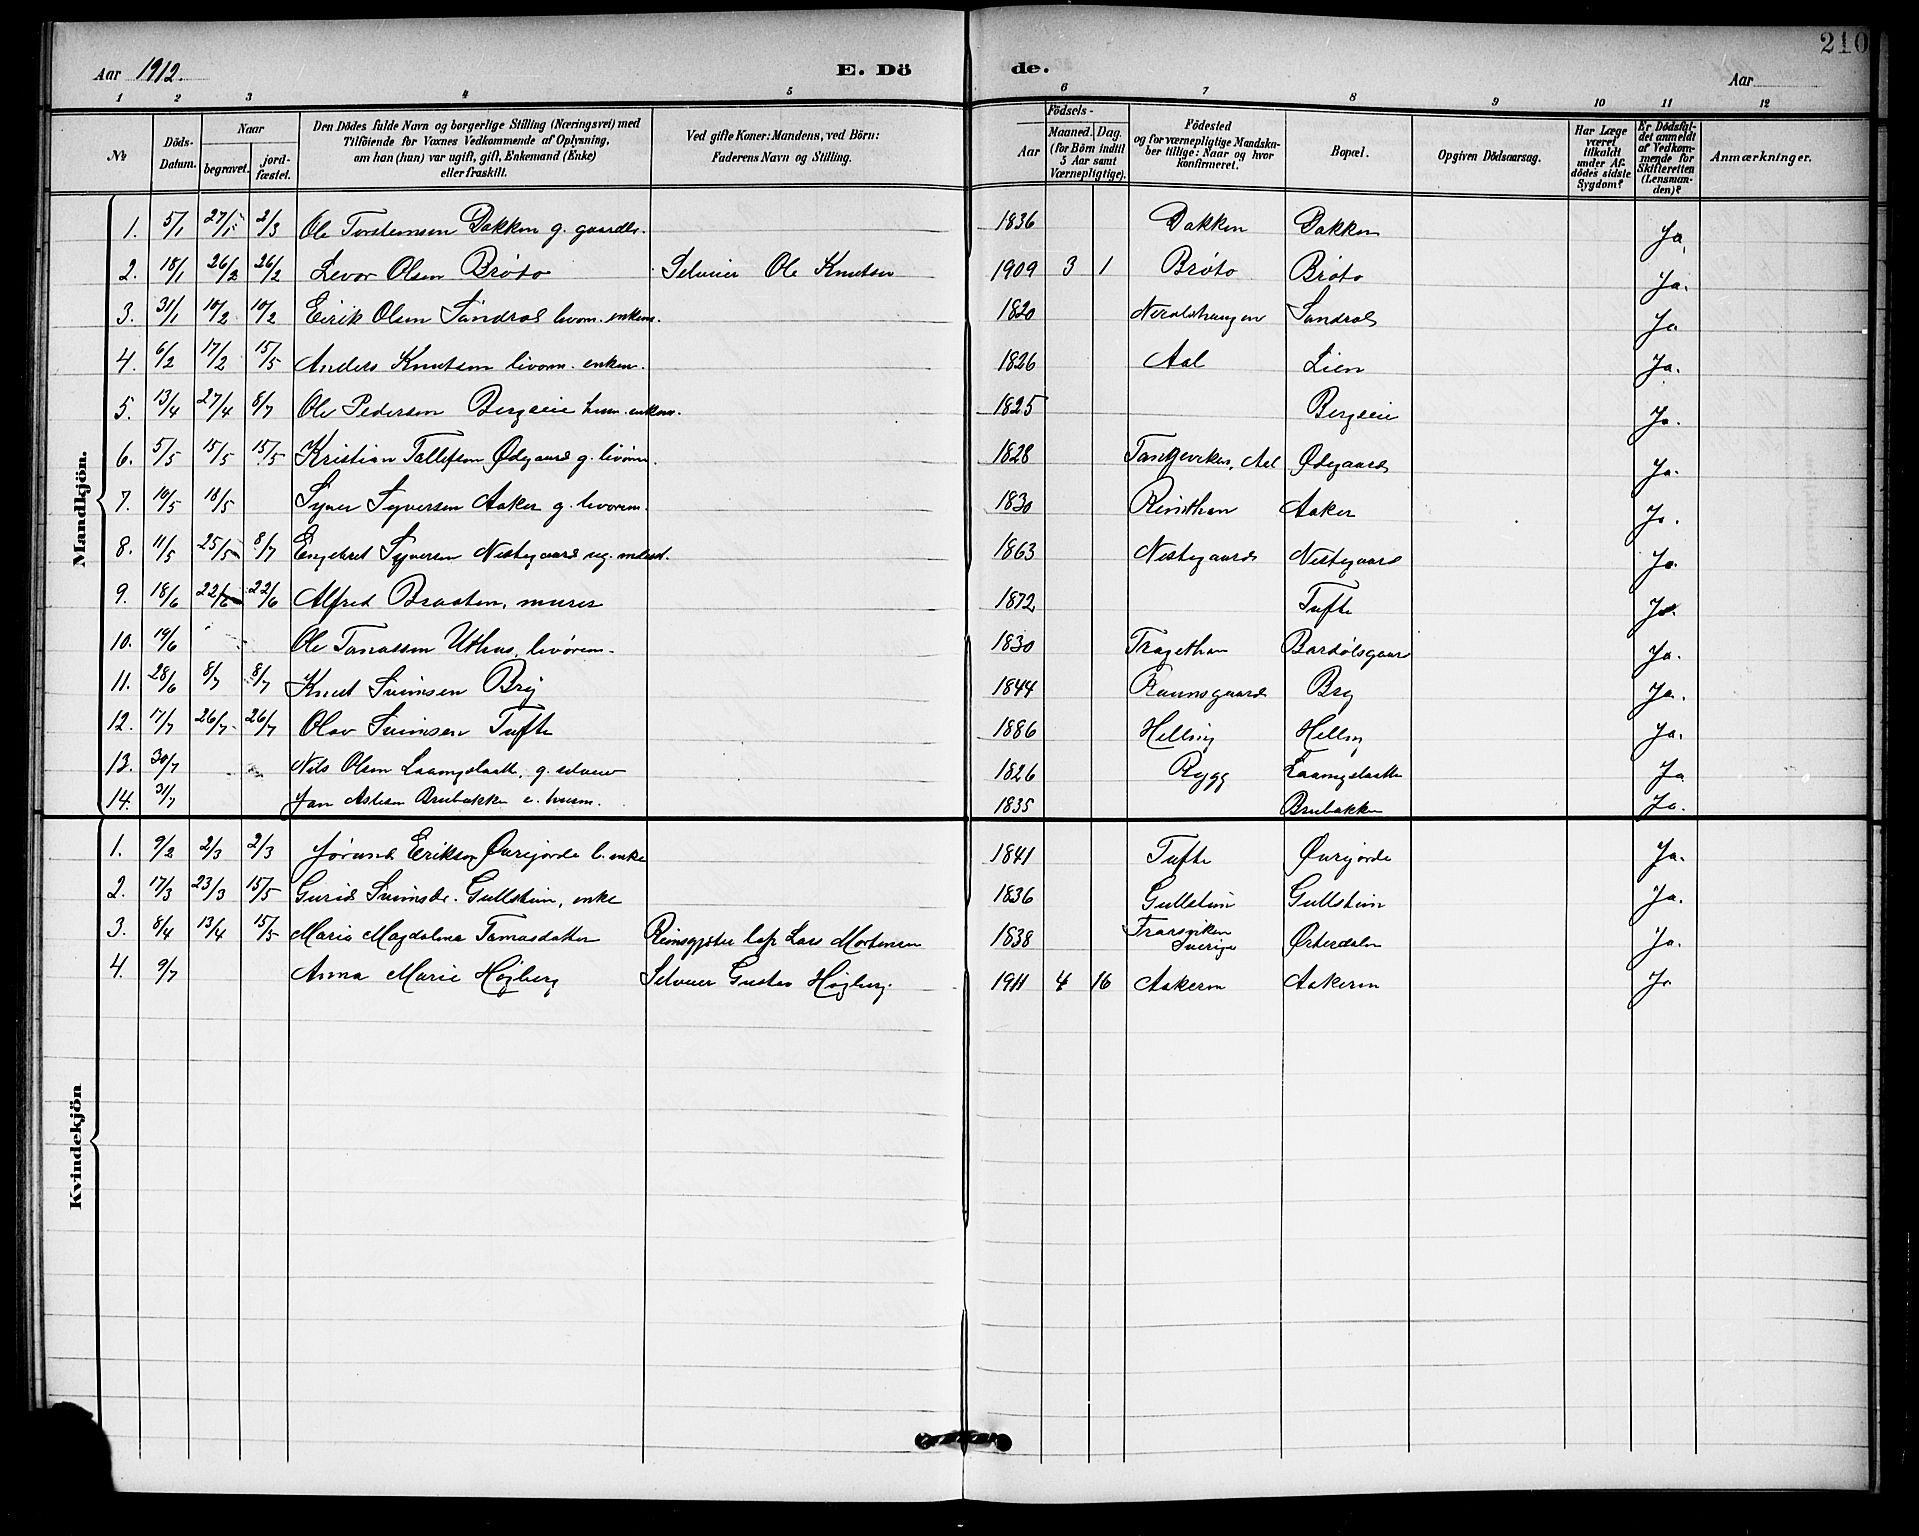 210
Aar 1912. E. Dö de. Aar
1 2 3 4 5 6 7 8 9 10 11 12
№ Döds-Datum. Naar begravet. jord-fæstet. Den Dödes fulde Navn og borgerlige Stilling (Næringsvei) med Tilföiende for Voxnes Vedkommende af Oplysning, om han (hun) var ugift, gift, Enkemand (Enke) eller fraskilt. Ved gifte Koner: Mandens, ved Börn: Faderens Navn og Stilling. Födsels- Aar Maaned. Dag. (for Börn indtil 5 Aar samt Værnepligtige). Födested og for værnepligtige Mandskaber tillige: Naar og hvor konfirmeret. Bopæl. Opgiven Dödsaarsag. Har Læge været tilkaldt under Afdödes sidste Sygdom? Er Dödsfaldet anmeldt af Vedkommende for Skifteretten (Lensmanden)? Anmærkninger.
Mandkjön.
1. 5/1 27/1 2/3 Ole Torsteinsen Bakken g. gaardbr. 1836 Bakken Bakken Ja,
2. 18/1 26/2 26/2 Levor Olsen Brøto Selveier Ole Knutsen 1909 3 1 Brøto Brøto Ja.
3. 31/1 10/2 10/2 Eirik Olsen Sandrol livøm. enkem. 1820 Sandrol Ja
4. 6/2 17/2 15/5 Anders Knutsen livøm. enkem. 1826 Aal Lien Ja.
5. 13/4 27/4 8/7 Ole Pedersen Bergseie husm. enkem. 1825 Bergseie Ja.
6. 5/5 15/5 15/5 Kristian Tollefsen Ødegaard g. livøm. 1828 Tangeviken, Aal Ødegaard Ja.
7. 10/5 18/5 Syver Syversen Aaker g. livørem. 1830 Aaker Ja.
8. 11/5 25/5 8/7 Engebret Syversen Nestegaard ug. 1863 Nestegaard Nestegaard Ja.
9. 18/6 22/6 22/6 Alfred Braaten, murer 1872 Tufte Ja.
10. 19/6 Ole Tomassen Uthus, livørem. 1830 Tragethon Bardølsgaar Ja.
11. 28/6 8/7 8/7 Knut Sveinsen Bry 1844 Bry Ja.
12. 17/7 26/7 26/7 Olav Sveinsen Tufte 1886 Helling Helling Ja.
13. 30/7 Nils Olsen Laangslaatt, g. selveier 1826 Rygg Laangslaatte Ja
14. 31/7 Jon Aslesen Brubakken e. husm. 1835 Brubakken Ja.
Kvindekjön
1. 9/2 2/3 2/3 Jørund Eriksen Øvrejorde l. enke 1841 Tufte Øvrejorde Ja.
2. 17/3 23/3 15/5 Gurid Sveinsdr. Gullstein, enke 1836 Gullstein Gullstein Ja.
3. 8/4 13/4 15/5 Maria Magdalena Tomasdatter Lars Mortensen 1838 Sverige Østerdalen Ja.
4. 9/7 Anna Marie Høgberg Selveier Gustav Høgberg. 1911 4 16 Aakeren Aakeren Ja